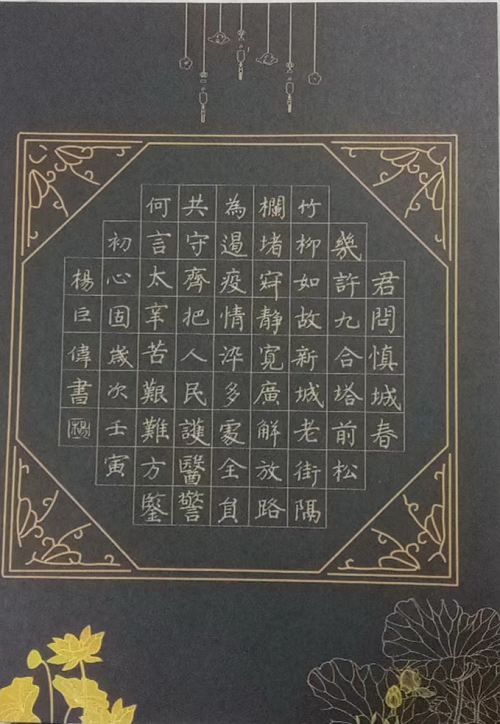 君問慎城春
幾許九合塔前松
竹柳如故新城老街隅
欄堵靜寬廣解放路
為遏疫情多處全員
共守齊把人民護醫警
何言太辛苦艱難方鑒
初心固歲次壬寅
楊巨偉書